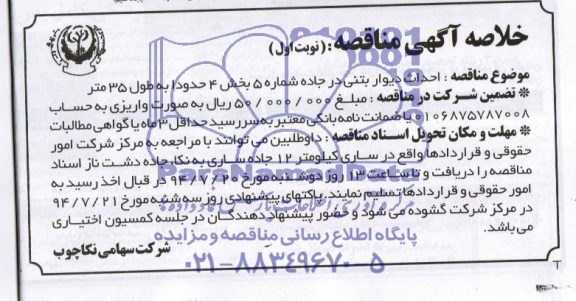 خلاصه آگهی مناقصه: (نوبت اول)
موضوع مناقصه: احداث دیوار بتنی در جاده شماره ۵ بخش ۴ حدودا به طول ۳۵ متر
* تضمین شرکت در مناقصه: مبلغ ۵۰/۰۰۰/۰۰۰ ریال به صورت واریزی به حساب
۰۱۰۶۸۷۵۷۸۷۰۰۸ یا ضمانت نامه بانکی معتبر به سررسید حداقل ۳ ماه یا گواهی مطالبات
* مهلت و مکان تحویل اسناد مناقصه: داوطلبین می توانند با مراجعه به مرکز شرکت امور
حقوقی و قراردادها واقع در ساری کیلومتر ۱۲ جاده ساری به نکا، جاده دشت ناز اسناد
مناقصه را دریافت و تا ساعت ۱۳ روز دوشنبه مورخ ۹۴/۷/۲۰ در قبال اخذ رسید به
امور حقوقی و قراردادها تسلیم نمایند. پاکتهای پیشنهادی روز سه شنبه مورخ ۹۴/۷/۲۱
در مرکز شرکت گشوده می شود و حضور پیشنهاد دهندگان در جلسه کمیسیون اختیاری
می باشد.
شرکت سهامی نکاچوب
ParaNamadData
پایگاه اطلاع رسانی مناقصه و مزایده
۰۲۱-۸۸۳۴۹۶۷۰-۵